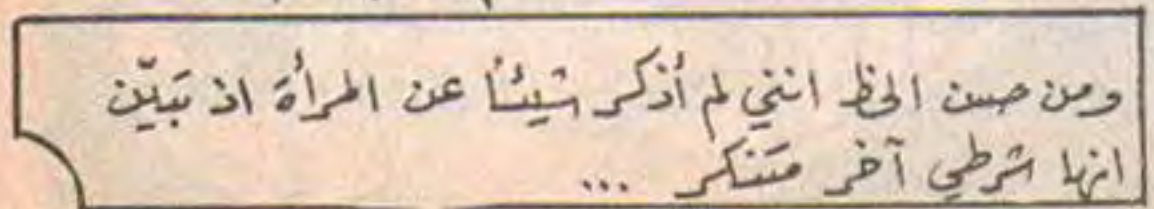 ومن حسن الحظ انني لم أذكر شيئاً عن المرأة اذ تبيّن
انها شرطي آخر متنكر ...